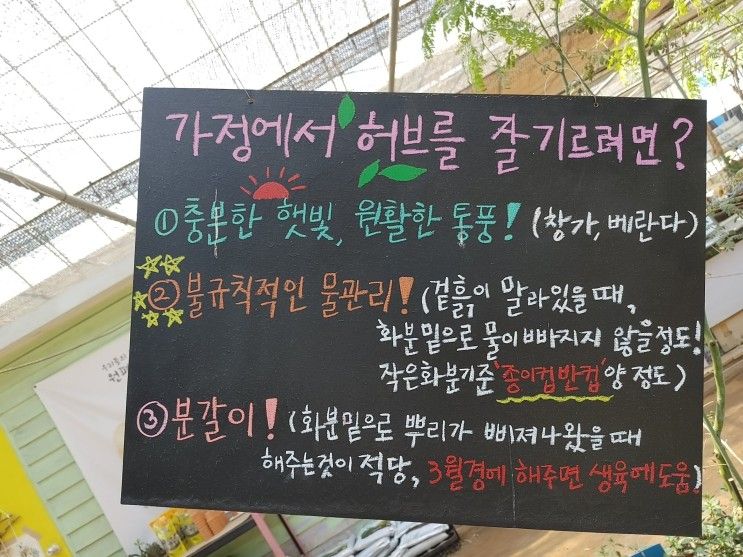 가정에서 허브를 잘 기르려면?
① 충분한 햇빛, 원활한 통풍! (창가, 베란다)
② 불규칙적인 물관리! (겉흙이 말라있을 때,
화분밑으로 물이 빠지지 않을정도!
작은화분기준 '종이컵반컵'양 정도)
③ 분갈이! (화분밑으로 뿌리가 삐져나왔을 때
해주는것이 적당, 3월경에 해주면 생육에 도움)